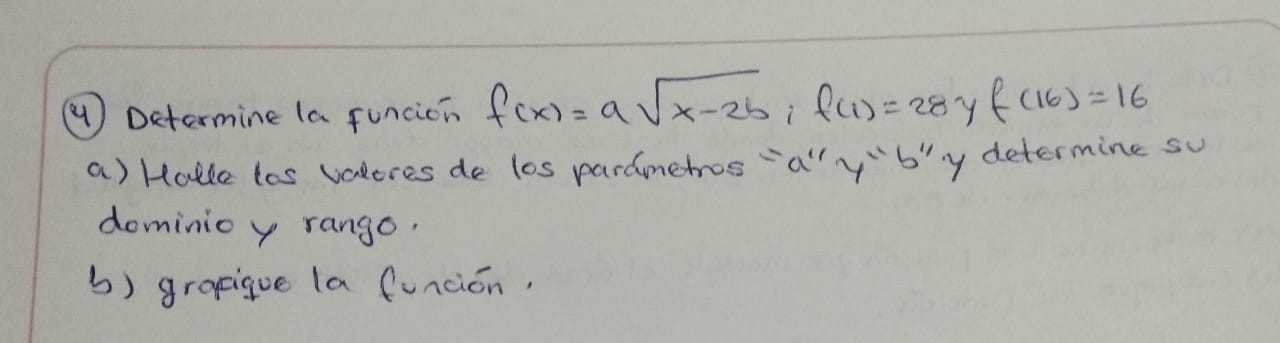 4 Determine la función f(x) = a√x-2b ; f(1) = 28 y f(16) = 16
a) Halle los valores de los parámetros "a" y "b" y determine su
dominio y rango.
b) grafique la función.